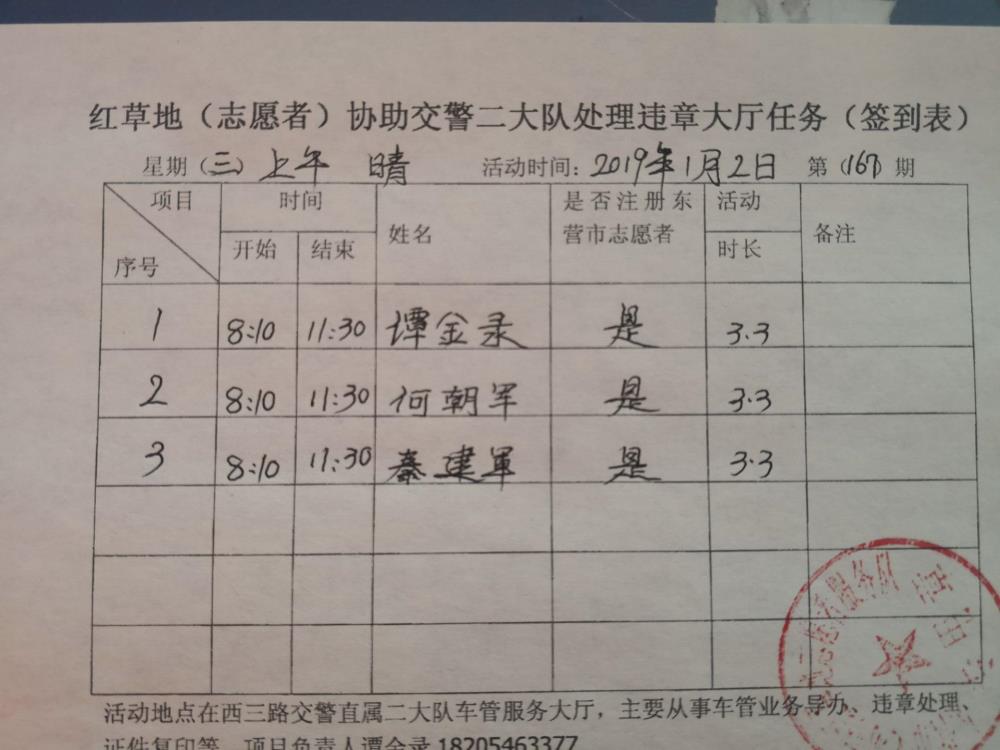 红草地（志愿者）协助交警二大队处理违章大厅任务（签到表）
星期（三）上午 晴 活动时间：2019年1月2日 第（167）期
项目 时间 姓名 是否注册东营市志愿者 活动时长 备注
序号 开始 结束
1 8:10 11:30 谭金录 是 3.3
2 8:10 11:30 何朝军 是 3.3
3 8:10 11:30 秦建军 是 3.3
服务队
活动地点在西三路交警直属二大队车管服务大厅，主要从事车管业务导办、违章处理、
证件复印等。项目负责人谭金录 18205463377